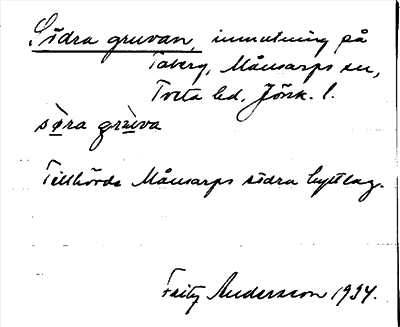 Södra gruvan, inmutning på
Taberg, Månsarps sn,
Tveta hd, Jönk. l.
sö̀ra grùva
Tillhörde Månsarps södra hyttlag.
Fritz Andersson 1934.